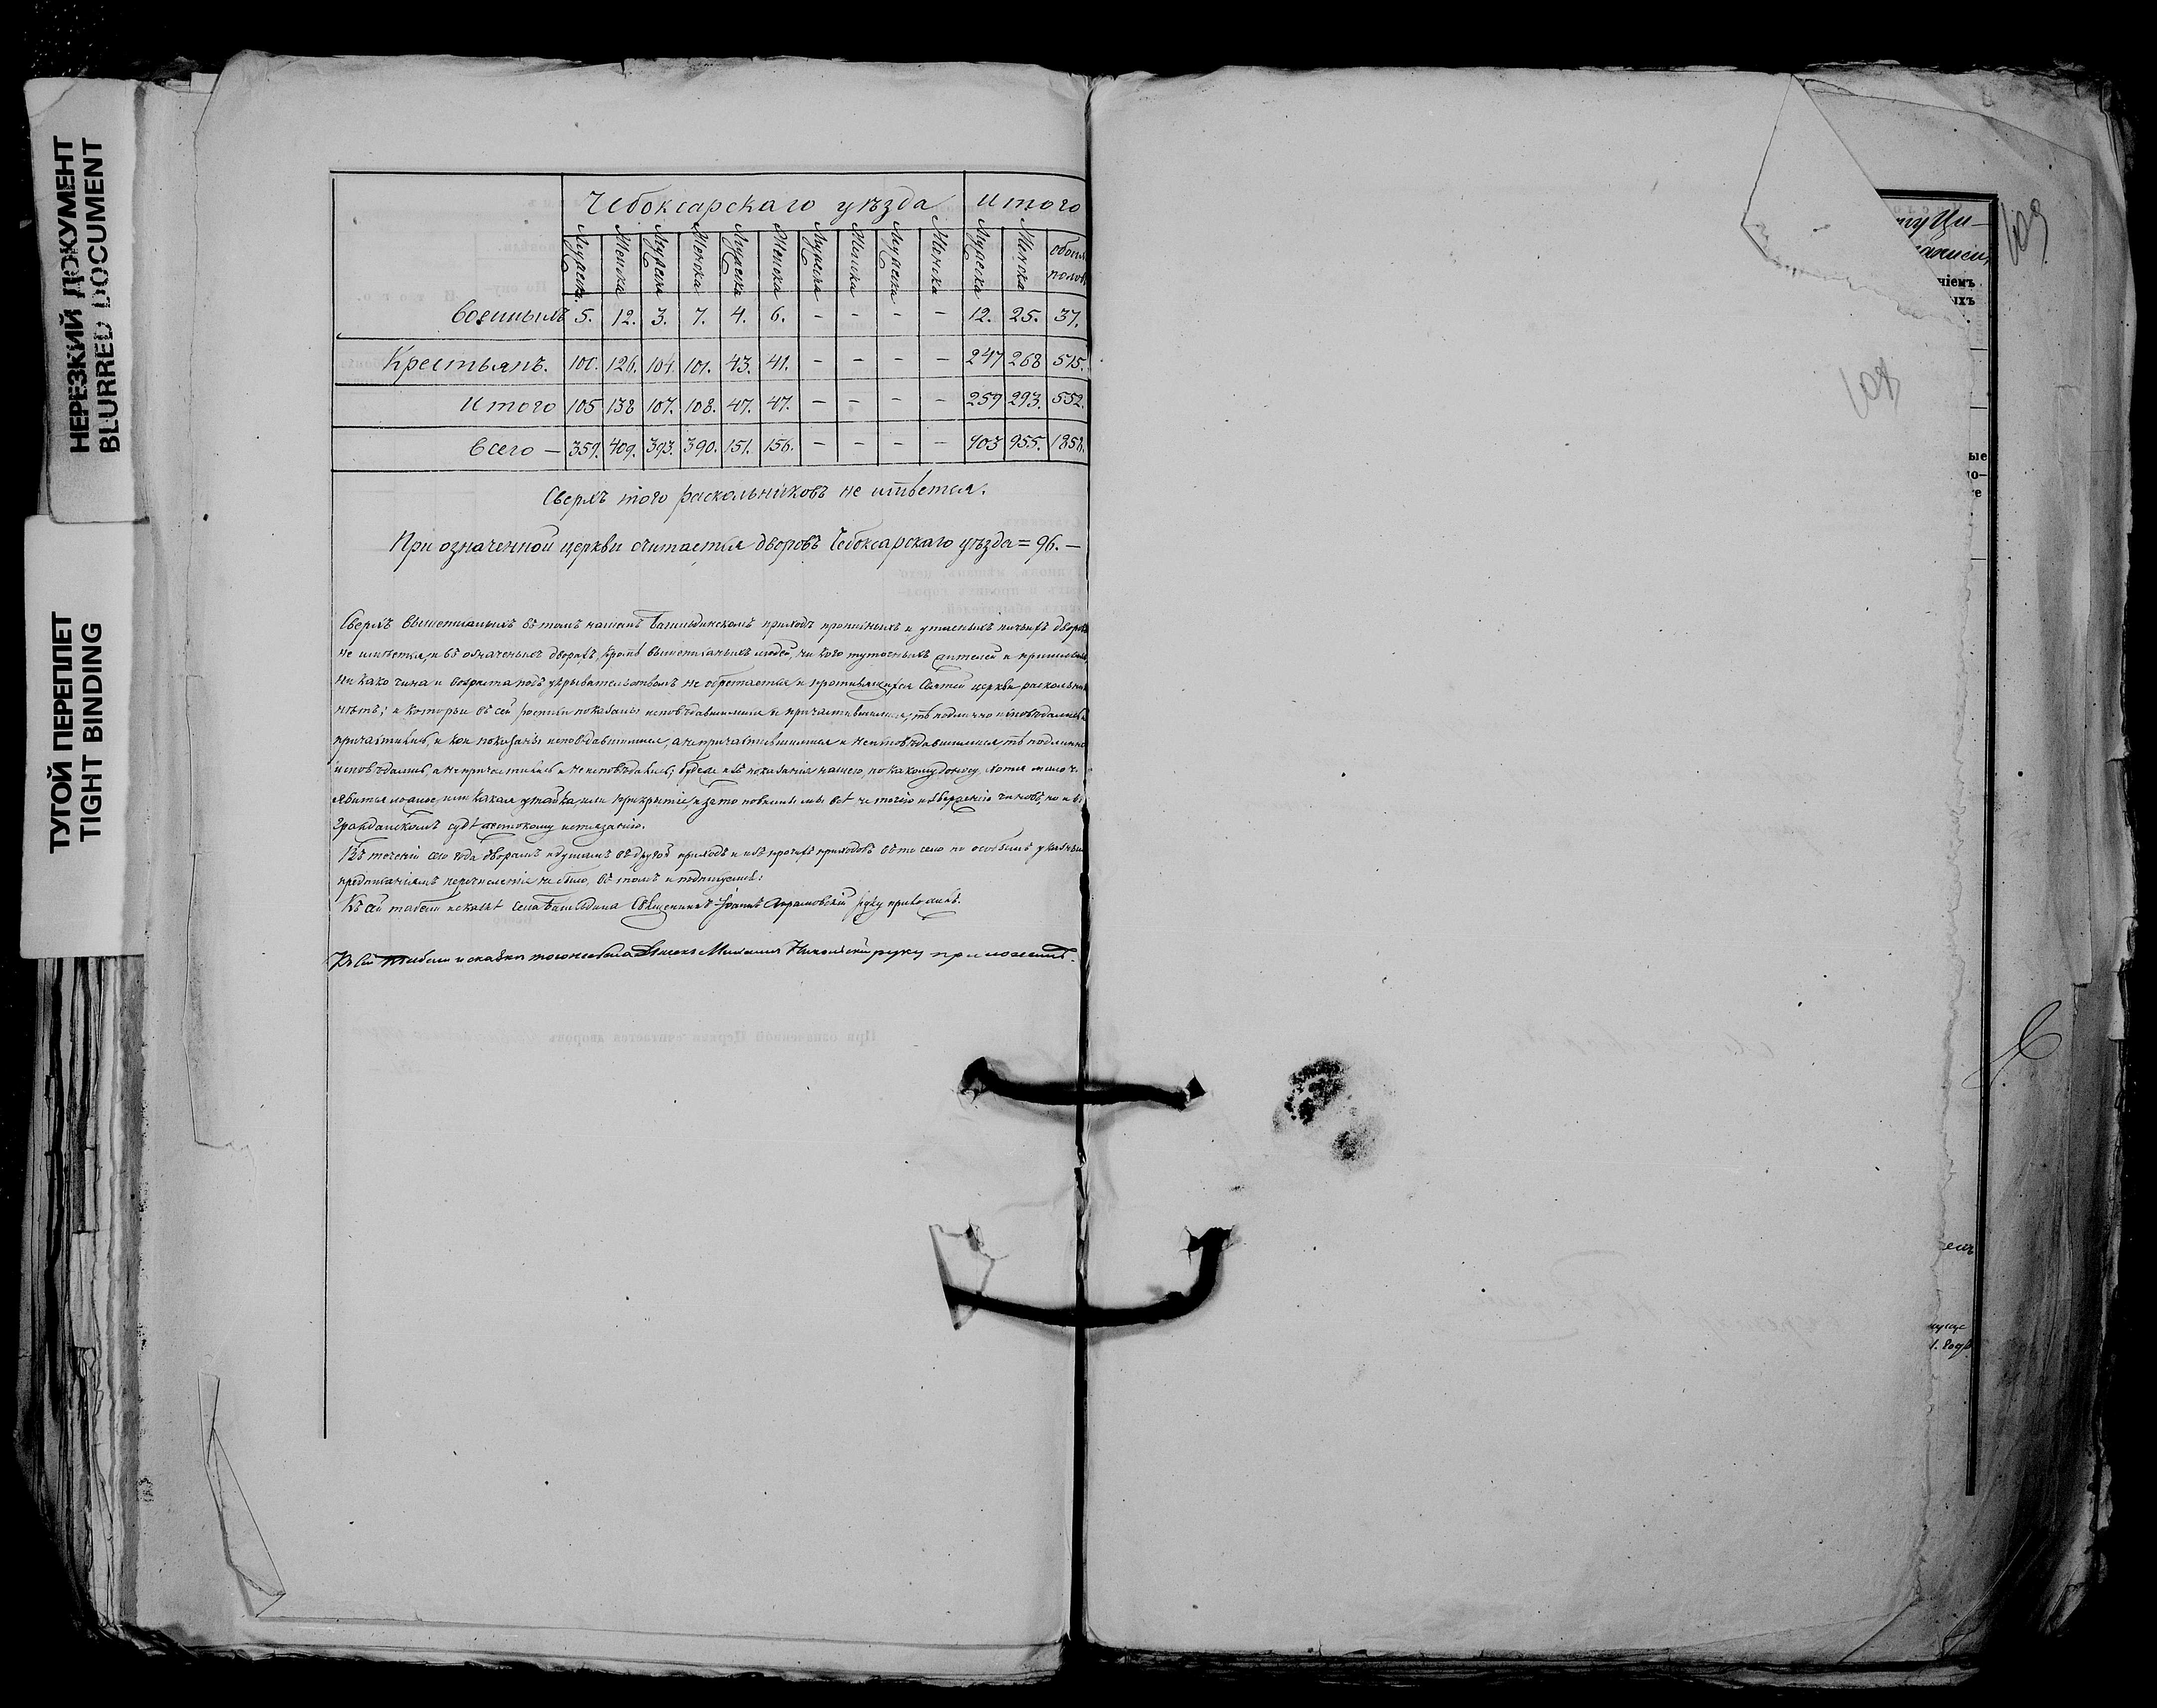 НЕРЕЗКИЙ ДОКУМЕНТ
BLURRED DOCUMENT
ТУГОЙ ПЕРЕПЛЕТ
TIGHT BINDING
Чебоксарскаго уѣзда Итого
Мужеска Женска Мужеска Женска Мужеска Женска Мужеска Женска Мужеска Женска Мужеска Женска обоего полов
Военныхъ 5. 12. 3. 7. 4. 6. – – – – 12. 25. 37.
Крестьянъ. 100. 126. 104. 101. 43. 41. – – – – 247 268 515.
Итого 105 138 107. 108. 47. 47. – – – – 259 293. 552.
Всего — 359. 409. 393. 390. 151. 156. – – – – 903 955. 1858.
Сверхъ того раскольниковъ не имѣется.
При означенной церкви считается дворовъ Чебоксарскаго уѣзда = 96. —
Сверхъ въ томъ нашемъ приходѣ и дворовъ
не имѣется, и въ означеныхъ дворахъ, кромѣ вышеписанныхъ людей, ни кого
ни како чина и возраста подъ укрывательствомъ не обретается и противляющихся Святой церкви
нѣтъ; и которые въ сей росписи показаны исповѣдавшимися и причастившимися, тѣ подлинно исповѣдались
причастились, и кои показаны исповѣдавшимися, а не причастившимися и неисповѣдавшимися, тѣ подлинно
исповѣдались, а не причастились и не исповѣдались; будеже изъ показанія нашего, по какому доносу, хотя мало ч.
явится ложное, или какая утайка, или прикрытіе, и зато повинны мы всѣ не точію изверженію чиновъ, но и въ
Гражданскомъ судѣ жестокому истязанію.
Въ теченіи сего года дворамъ и душамъ въ другой приходъ и изъ прочихъ приходовъ въ то село по особымъ указнымъ
предписаніямъ перечисленія не было, въ томъ и подпишемся:
Къ сей табели и сказкѣ села Священникъ Іоаннъ руку приложилъ.
Къ сей табели и сказки того же села Дьяконъ Михаилъ Никольскій руку приложилъ.
109
108
ніемъ
ыхъ
ые